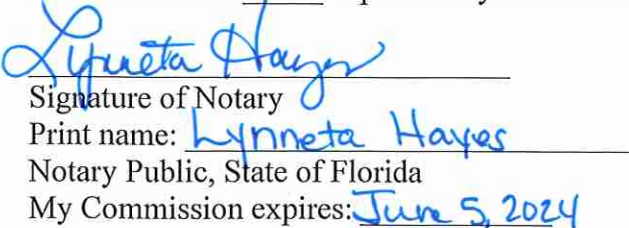 Lynneta Hayes
Signature of Notary
Print name: Lynneta Hayes
Notary Public, State of Florida
My Commission expires: June 5, 2024